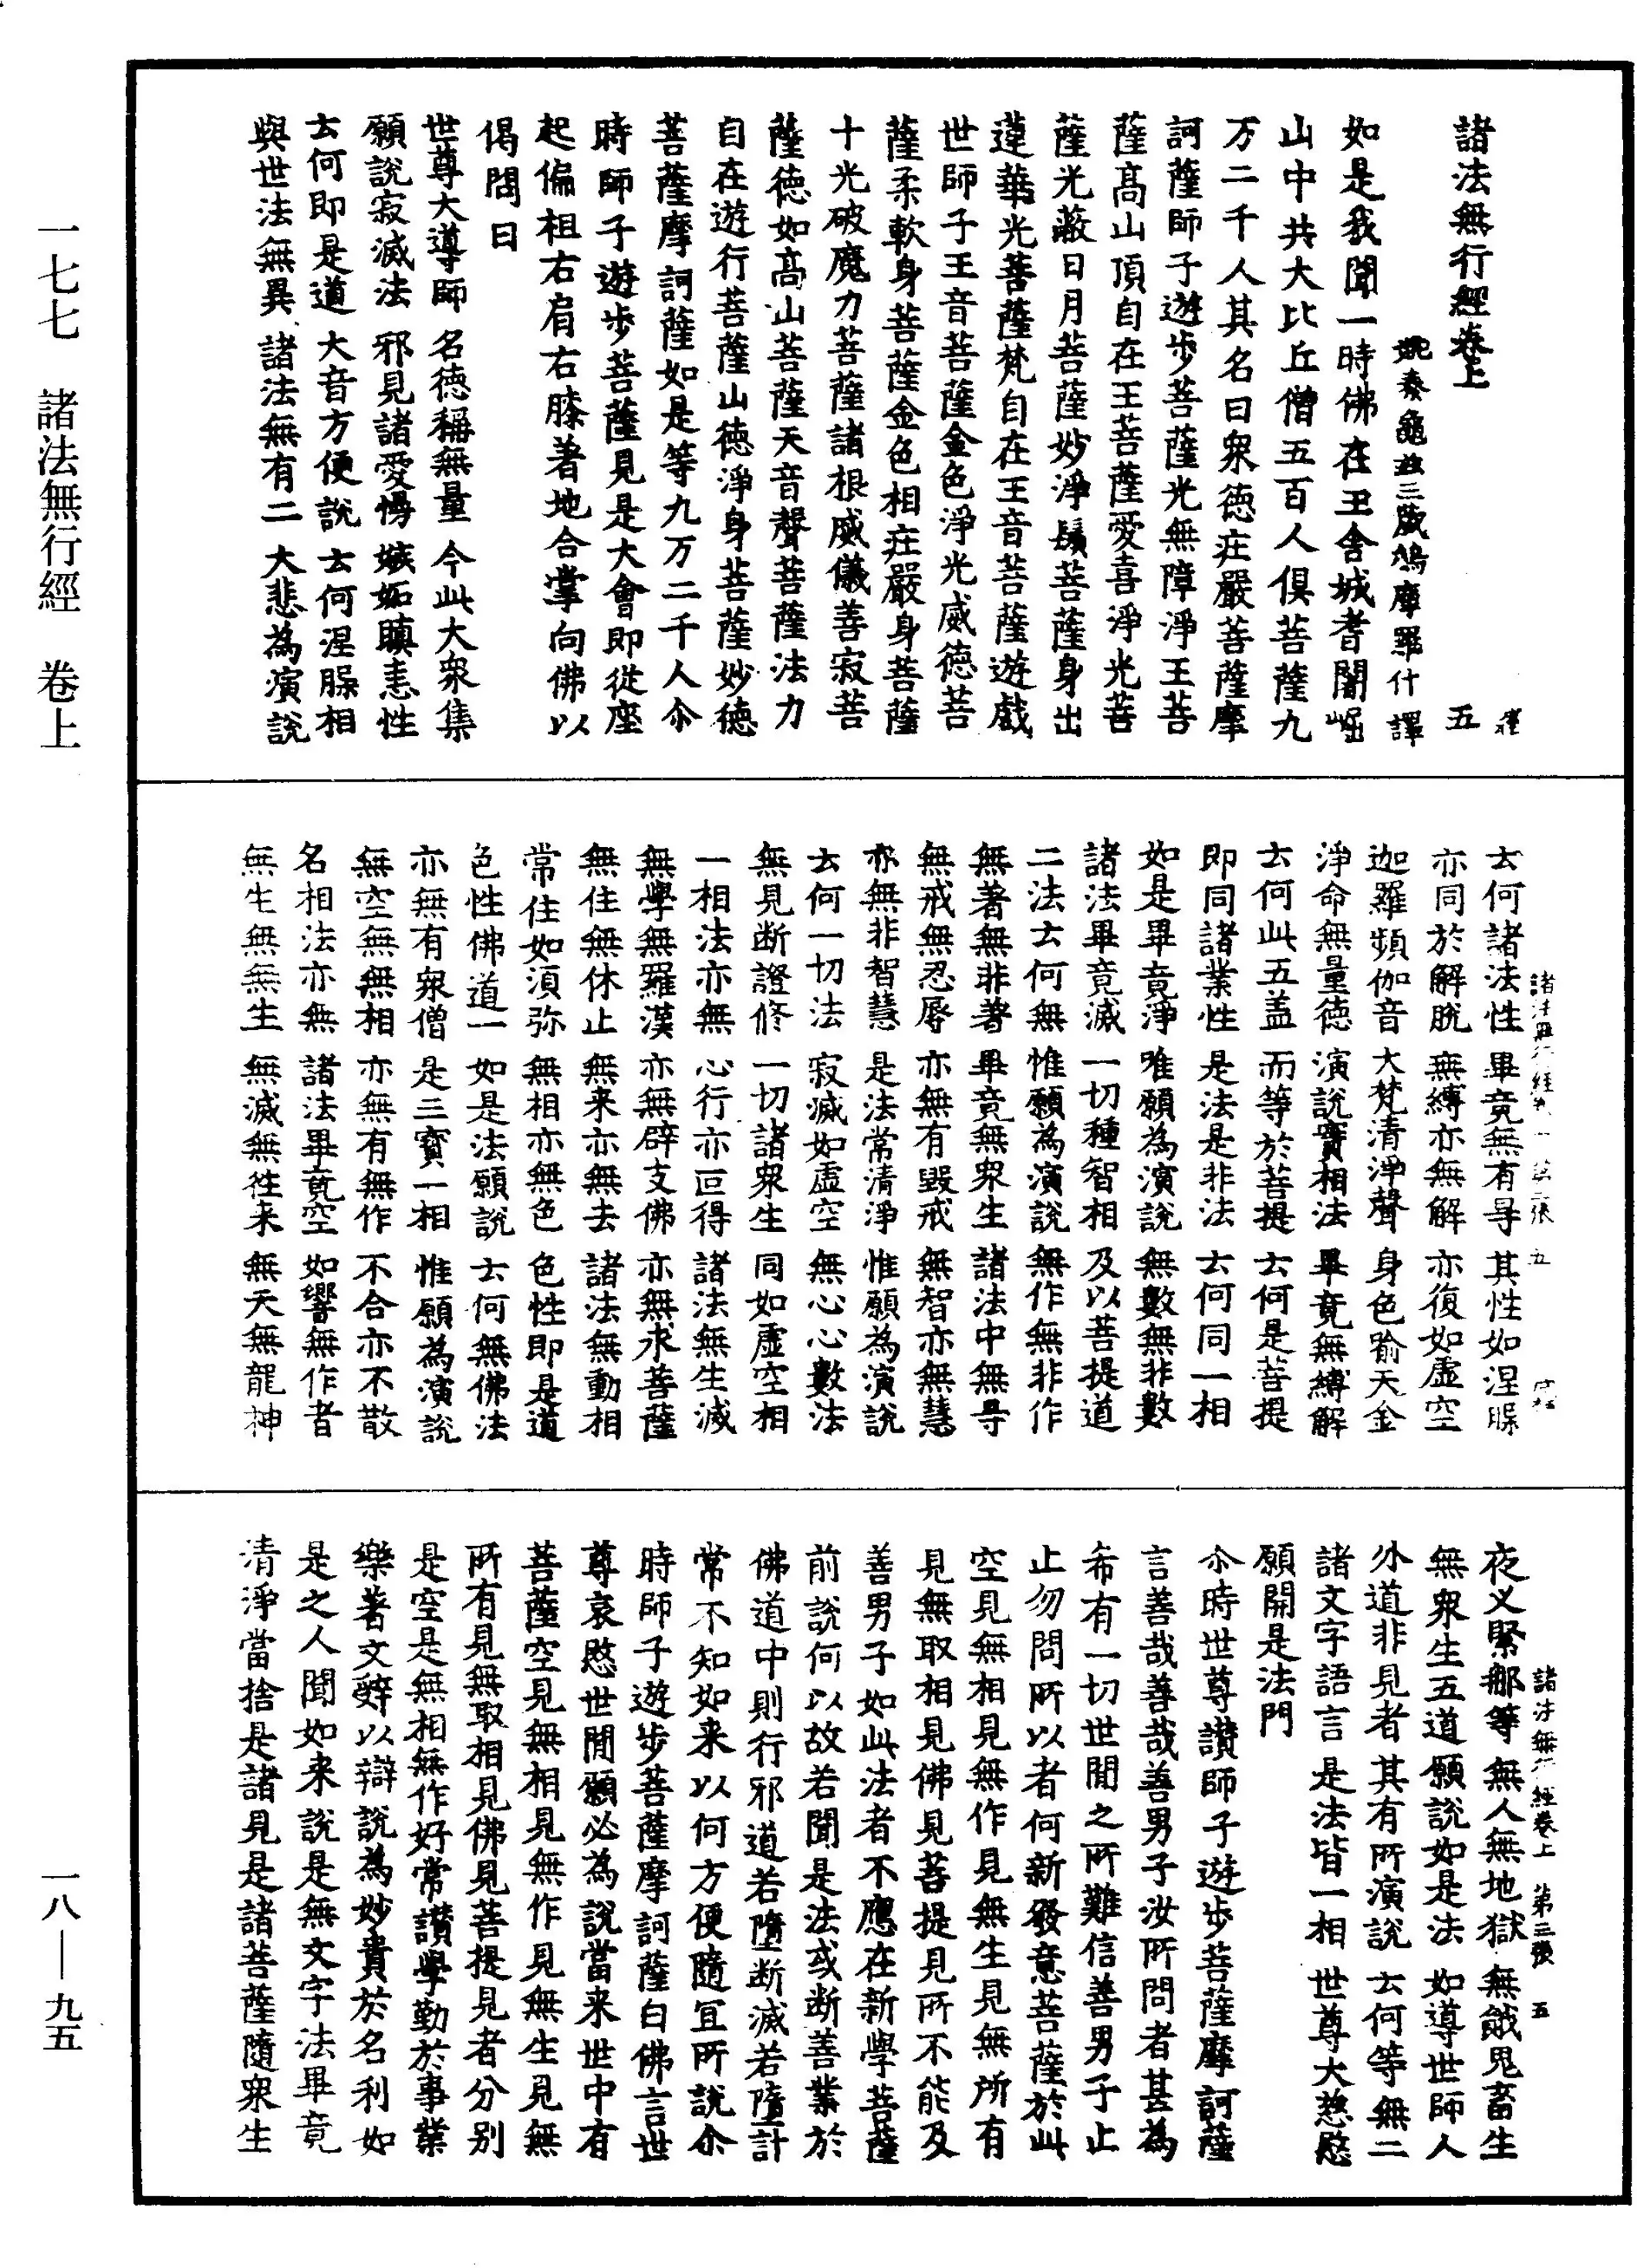 諸法無行經卷上 五
姚秦龜茲三藏鳩摩羅什譯
如是我聞一時佛在王舍城耆闍崛
山中共大比丘僧五百人俱菩薩九
万二千人其名曰衆德庄嚴菩薩摩
訶薩師子遊步菩薩光無障淨王菩
薩高山頂自在王菩薩愛喜淨光菩
薩光蔽日月菩薩妙淨鬚菩薩身出
蓮華光菩薩梵自在王音菩薩遊戲
世師子王音菩薩金色淨光威德菩
薩柔軟身菩薩金色相庄嚴身菩薩
十光破魔力菩薩諸根威儀善寂菩
薩德如高山菩薩天音聲菩薩法力
自在遊行菩薩山德淨身菩薩妙德
菩薩摩訶薩如是等九万二千人尒
時師子遊步菩薩見是大會即從座
起偏袒右肩右膝著地合掌向佛以
偈問曰
世尊大導師 名德稱無量 今此大衆集
願說寂滅法 邪見諸愛慢 嫉妬瞋恚性
云何即是道 大音方便說 云何涅槃相
與世法無異 諸法無有二 大悲為演說
云何諸法性 畢竟無有㝵 其性如涅槃
亦同於解脫 無縛亦無解 亦復如虛空
迦羅頻伽音 大梵清淨聲 身色踰天金
淨命無量德 演說實相法 畢竟無縛解
云何此五盖 而等於菩提 云何是菩提
即同諸業性 是法是非法 云何同一相
如是畢竟淨 唯願為演說 無數無非數
諸法畢竟滅 一切種智相 及以菩提道
二法云何無 惟願為演說 無作無非作
無著無非著 畢竟無衆生 諸法中無㝵
無戒無忍辱 亦無有毀戒 無智亦無慧
亦無非智慧 是法常清淨 惟願為演說
云何一切法 寂滅如虛空 無心心數法
無見断證修 一切諸衆生 同如虛空相
一相法亦無 心行亦叵得 諸法無生滅
無學無羅漢 亦無辟支佛 亦無求菩薩
無住無休止 無来亦無去 諸法無動相
常住如須弥 無相亦無色 色性即是道
色性佛道一 如是法願說 云何無佛法
亦無有衆僧 是三寳一相 惟願為演說
無空無無相 亦無有無作 不合亦不散
名相法亦無 諸法畢竟空 如響無作者
無生無無生 無滅無徃来 無天無龍神
諸法無行經卷上 第三張 五
夜叉緊那等 無人無地獄 無餓鬼畜生
無衆生五道 願說如是法 如導世師人
外道非見者 其有所演說 云何等無二
諸文字語言 是法皆一相 世尊大慈愍
願開是法門
尒時世尊讃師子遊步菩薩摩訶薩
言善哉善哉善男子汝所問者甚為
希有一切世間之所難信善男子止
止勿問所以者何新發意菩薩於此
空見無相見無作見無生見無所有
見無取相見佛見菩提見所不能及
善男子如此法者不應在新學菩薩
前說何以故若聞是法或断善業於
佛道中則行邪道若墮断滅若墮計
常不知如来以何方便隨宜所說尒
時師子遊步菩薩摩訶薩白佛言世
尊哀愍世間願必為說當来世中有
菩薩空見無相見無作見無生見無
所有見無取相見佛見菩提見者分別
是空是無相無作好常讃學勤於事業
樂著文辭以辯說為妙貴於名利如
是之人聞如来說是無文字法畢竟
清淨當捨是諸見是諸菩薩隨衆生
一七七 諸法無行經 卷上
一八—九五